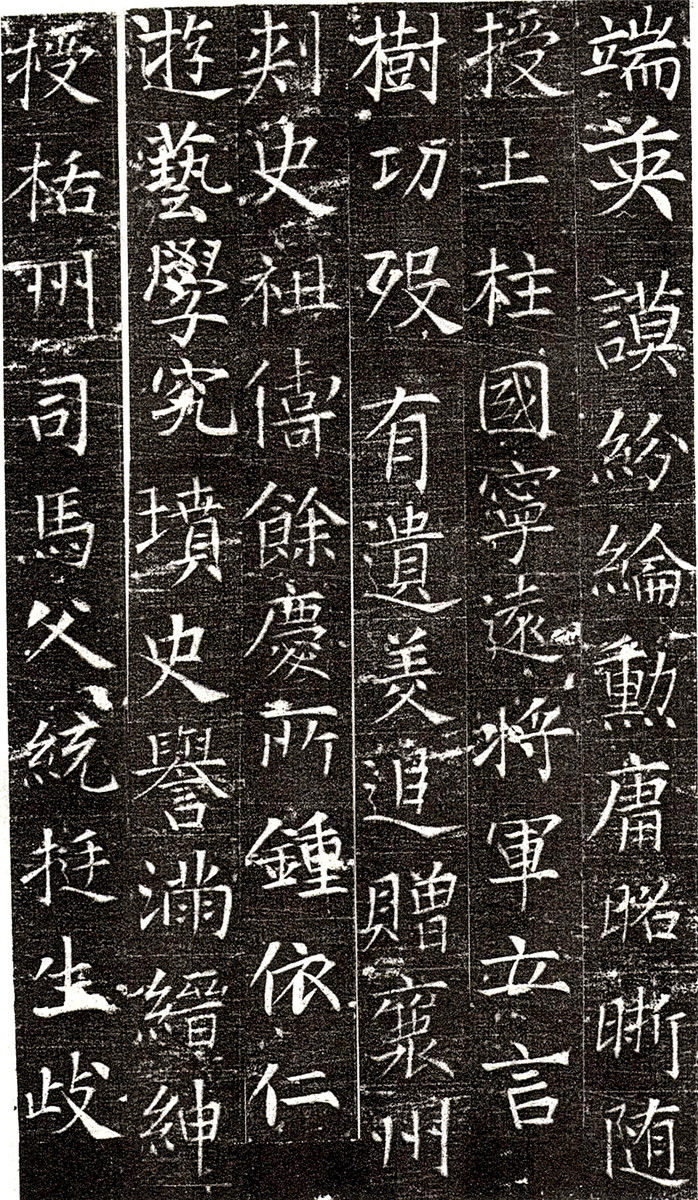 端英謨紛綸勳庸昭晣随
授上柱國寧遠将軍立言
樹功歿有遺羙追贈襄州
刾史祖餘慶所鍾依仁
遊藝學究墳史譽滿縉紳
授栝州司馬父統挺生歧